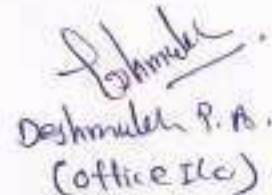 Deshmukh P. A.
(office I/c)